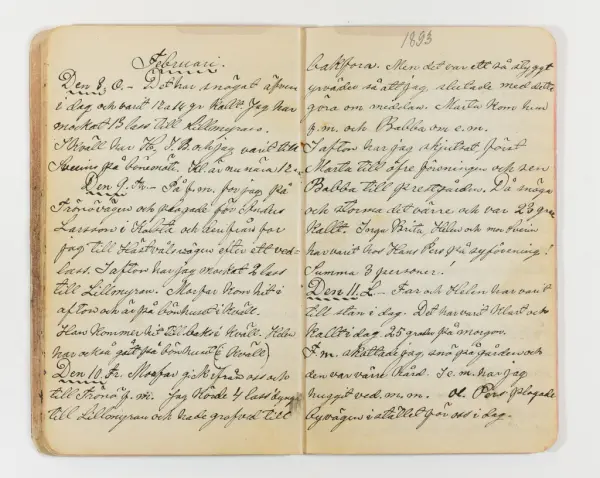 Februari.
Den 8, O. – Det har snögat äfven
i dag och varit 12 a 14 gr kallt. Jag har
mockat 13 lass till Lillmyran.
I kväll har K, J. B. och jag varit till
på bönemöte. Kl. är nu nära 12.
Den 9. To. – På f.m. for jag på
Trönövägen och plogade för Anders
Larsson i och for
jag till Hästvalsvägen efter ett ved-
lass. I afton har jag mockat 2 lass
till Lillmyran. Morfar kom hit i
afton och är på bönhuset i kväll.
Han kommer hit till baks i kväll. Helen
har också gått på bönhuset (i kväll)
Den 10. Fr. Morfar gick ifrån oss och
till Trönö f.m. Jag körde 4 lass dynga
till Lillmyran och hade grofved till
1893
bakfora. Men det var ett så styggt
yrväder så att jag slutade med detta
göra om medlan. Marta kom hem
f.m. och Babba om e.m.
I afton har jag skjutsat först
Marta till öfre föreningen och sen
Babba till prestgården. Då snöga
och storma det värre och var 23 gra
kallt. Inga Brita, Helen och mor
har varit hos Hans Pers på syförening!
Summa 3 personer!
Den 11. L – Far och Helen har varit
till stan i dag. Det har varit klart och
kallt i dag 25 grader på morgon.
F.m. skottade jag snö på gården och
den var värre hård. I e.m. har jag
huggit ved m.m. Ol. Pers plogade
byvägen i stället för oss i dag.